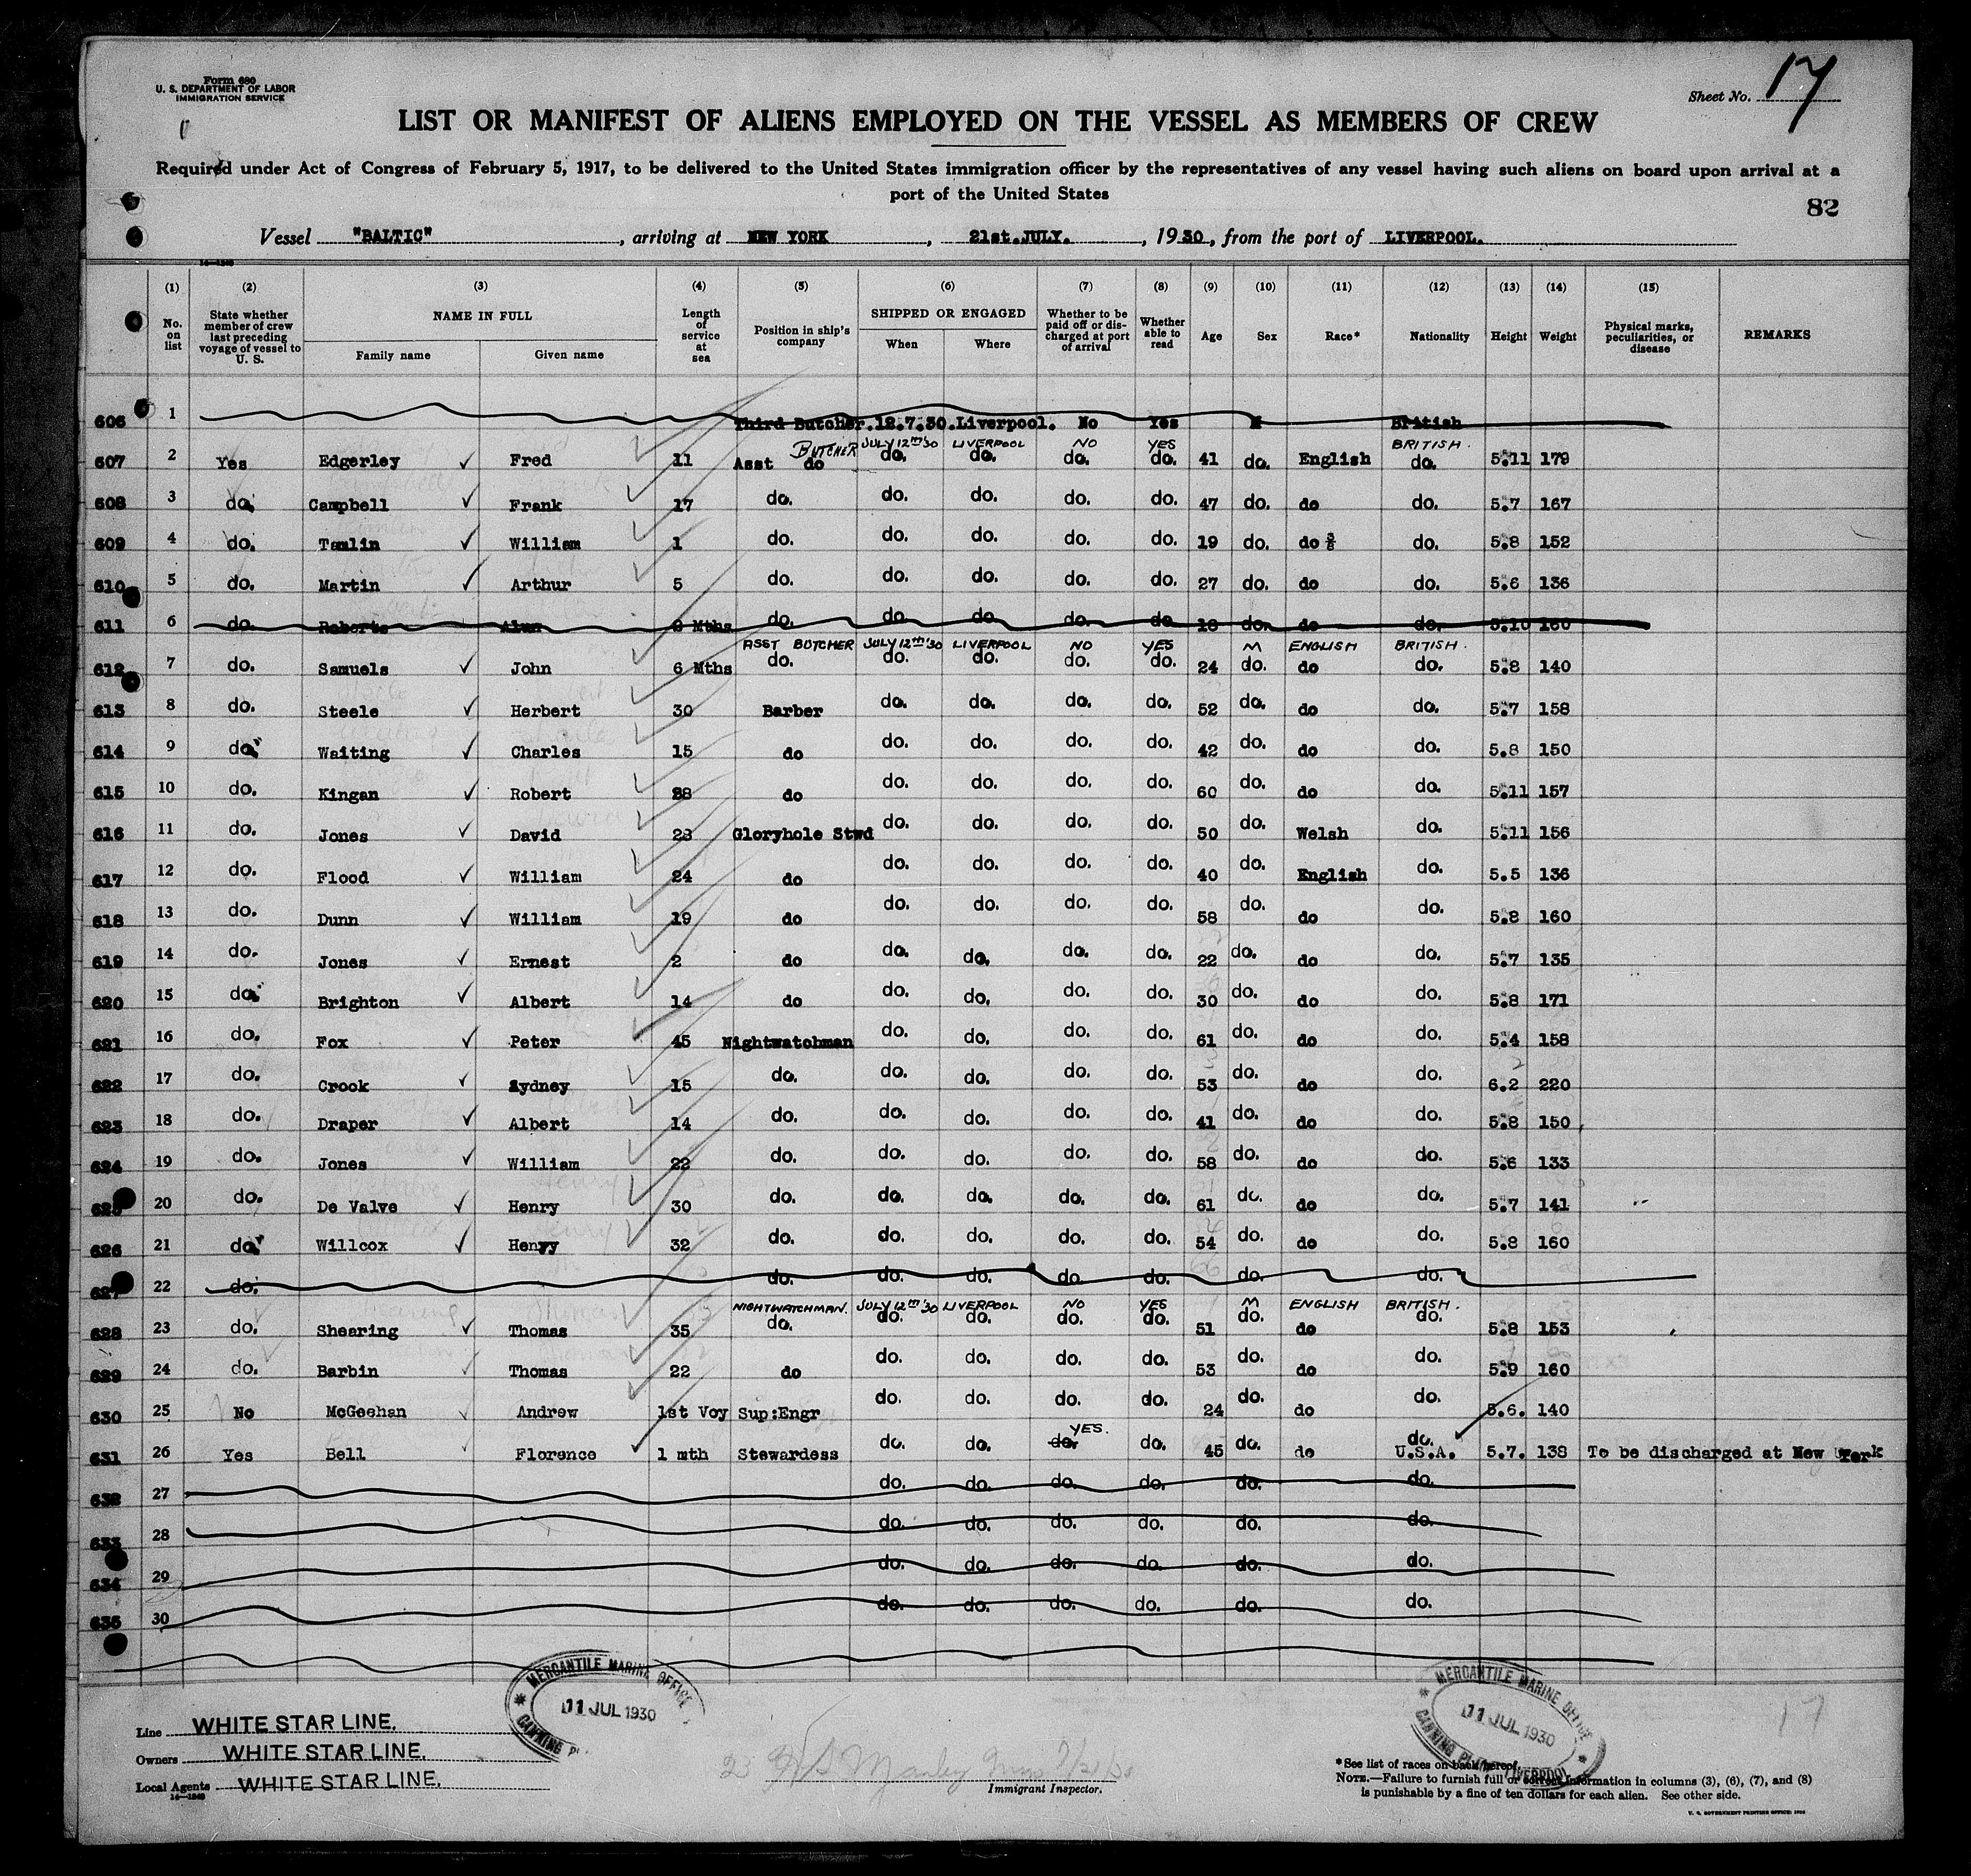 Form 680
U. S. DEPARTMENT OF LABOR
IMMIGRATION SERVICE
Sheet No. 17
LIST OR MANIFEST OF ALIENS EMPLOYED ON THE VESSEL AS MEMBERS OF CREW
Required under Act of Congress of February 5, 1917, to be delivered to the United States immigration officer by the representatives of any vessel having such aliens on board upon arrival at a
port of the United States
82
Vessel "BALTIC", arriving at NEW YORK, 21st.JULY., 1930, from the port of LIVERPOOL.
(1) (2) (3) (4) (5) (6) (7) (8) (9) (10) (11) (12) (13) (14) (15)
No. on list State whether member of crew last preceding voyage of vessel to U. S. NAME IN FULL Family name Given name Length of service at sea Position in ship's company SHIPPED OR ENGAGED When Where Whether to be paid off or discharged at port of arrival Whether able to read Age Sex Race* Nationality Height Weight Physical marks, peculiarities, or disease REMARKS
606 1 Third Butcher. 12.7.30. Liverpool. No Yes M British
BUTCHER JULY 12TH '30 LIVERPOOL NO YES BRITISH.
607 2 Yes Edgerley Fred 11 Asst do do. do. do. do. 41 do. English do. 5.11 179
608 3 do. Campbell Frank 17 do. do. do. do. do. 47 do. do do. 5.7 167
609 4 do. Tamlin William 1 do. do. do. do. do. 19 do. do do. 5.8 152
610 5 do. Martin Arthur 5 do. do. do. do. do. 27 do. do do. 5.6 136
611 6 do. Roberts Alun 9 Mths do. do. do. do. do. 18 do. do do. 5.10 160
ASST BUTCHER JULY 12TH '30 LIVERPOOL NO YES M ENGLISH BRITISH.
612 7 do. Samuels John 6 Mths do. do. do. do. do. 24 do. do do. 5.8 140
613 8 do. Steele Herbert 30 Barber do. do. do. do. 52 do. do do. 5.7 158
614 9 do. Waiting Charles 15 do do. do. do. do. 42 do. do do. 5.8 150
615 10 do. Kingan Robert 28 do do. do. do. do. 60 do. do do. 5.11 157
616 11 do. Jones David 23 Gloryhole Stwd do. do. do. do. 50 do. Welsh do. 5.11 156
617 12 do. Flood William 24 do do. do. do. do. 40 do. English do. 5.5 136
618 13 do. Dunn William 19 do do. do. do. do. 58 do. do do. 5.8 160
619 14 do. Jones Ernest 2 do do. do. do. do. 22 do. do do. 5.7 135
620 15 do. Brighton Albert 14 do do. do. do. do. 30 do. do do. 5.8 171
621 16 do. Fox Peter 45 Nightwatchman do. do. do. do. 61 do. do do. 5.4 158
622 17 do. Crook Sydney 15 do. do. do. do. do. 53 do. do do. 6.2 220
623 18 do. Draper Albert 14 do. do. do. do. do. 41 do. do do. 5.8 150
624 19 do. Jones William 22 do. do. do. do. do. 58 do. do do. 5.6 133
625 20 do. De Valve Henry 30 do. do. do. do. do. 61 do. do do. 5.7 141
626 21 do. Willcox Henry 32 do. do. do. do. do. 54 do. do do. 5.8 160
627 22 do. do. do. do. do. do. do. do.
NIGHTWATCHMAN. JULY 12TH '30 LIVERPOOL NO YES M ENGLISH BRITISH.
628 23 do. Shearing Thomas 35 do. do. do. do. do. 51 do. do do. 5.8 153
629 24 do. Barbin Thomas 22 do do. do. do. do. 53 do. do do. 5.9 160
630 25 No McGeehan Andrew 1st Voy Sup:Engr do. do. do. do. 24 do. do do. 5.6. 140
YES.
631 26 Yes Bell Florence 1 mth Stewardess do. do. do. do. 45 do. do do. U.S.A. 5.7. 138 To be discharged at New York
632 27 do. do. do. do. do. do.
633 28 do. do. do. do. do. do.
634 29 do. do. do. do. do. do.
635 30 do. do. do. do. do. do.
MERCANTILE MARINE OFFICE
11 JUL 1930
CANNING
MERCANTILE MARINE OFFICE
11 JUL 1930
CANNING PLACE LIVERPOOL
17
Line WHITE STAR LINE.
Owners WHITE STAR LINE.
Local Agents WHITE STAR LINE.
14—1240
Immigrant Inspector.
*See list of races on back hereof.
NOTE.—Failure to furnish full or correct information in columns (3), (6), (7), and (8)
is punishable by a fine of ten dollars for each alien. See other side.
U. S. GOVERNMENT PRINTING OFFICE: